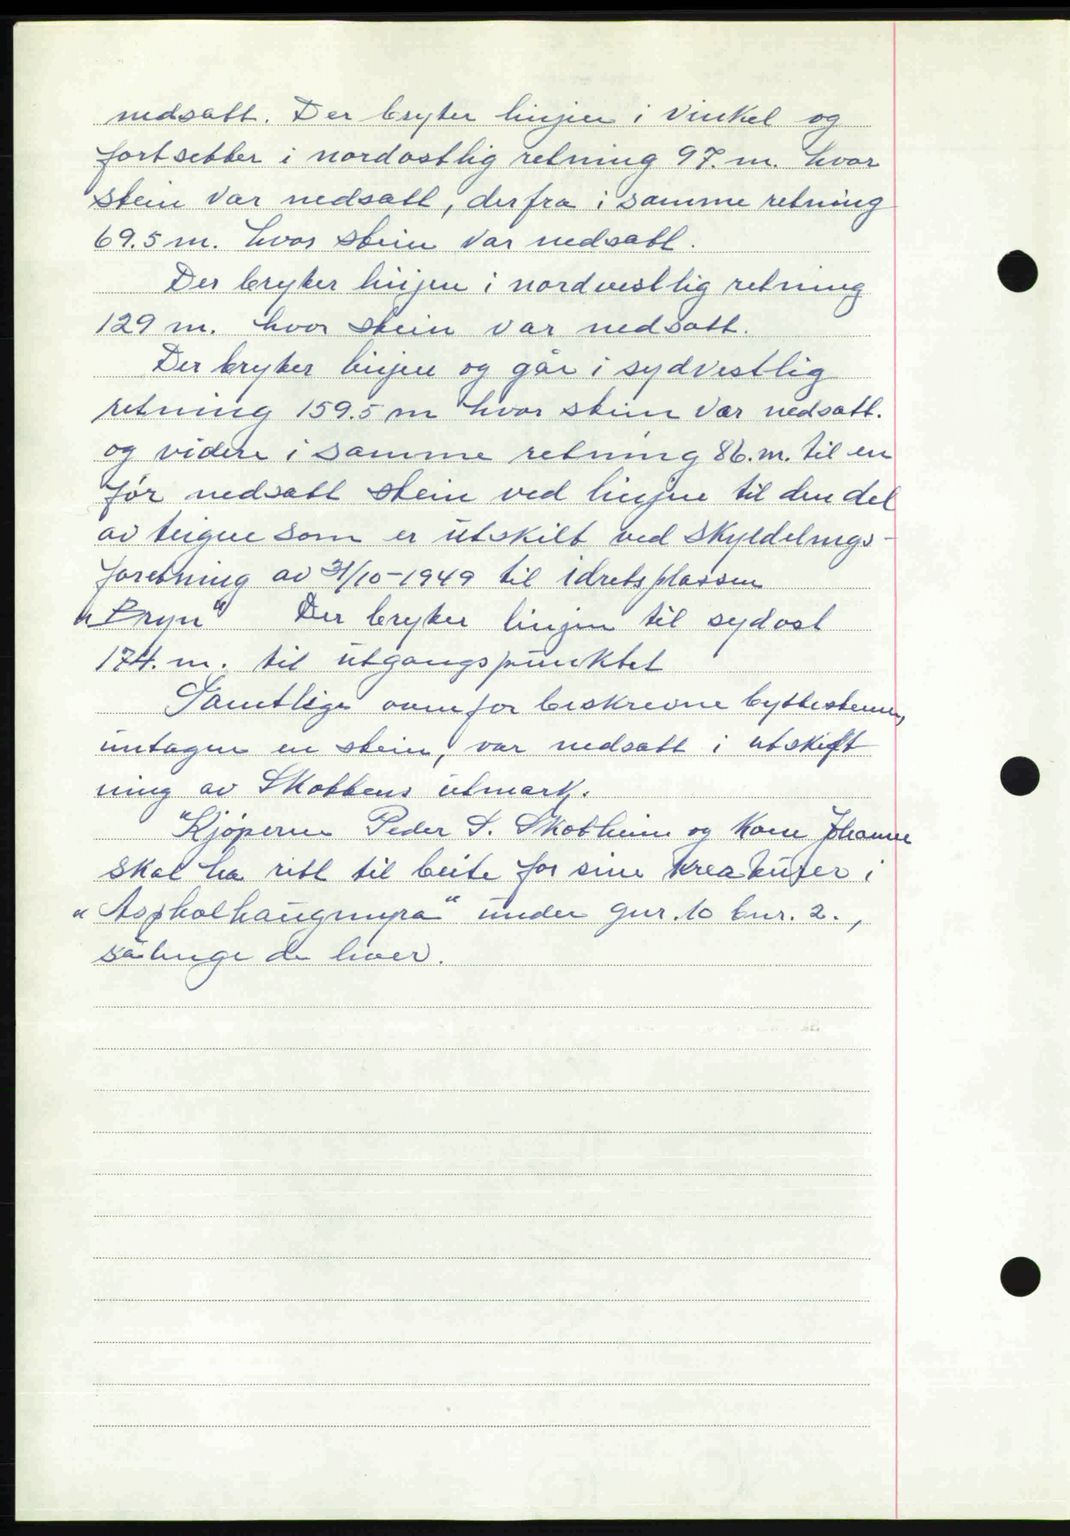 nedsatt. Der bryter linjen i vinkel og
fortsetter i nordostlig retning 97. m. hvor
stein var nedsatt, derfra i samme retning
69.5 m. hvor stein var nedsatt.
Der bryter linjen i nordvestlig retning
129 m. hvor stein var nedsatt.
Der bryter linjen og går i sydvestlig
retning 159.5 m hvor stein var nedsatt.
og videre i samme retning 86. m. til en
før nedsatt stein ved linjene til den del
av teigen som er utskilt ved skyldelings-
foretning av 31/10-1949 til idretsplassen
"Bryn" Der bryter linjen til sydost
174. m. til utgangspunktet
Samtlige ovenfor beskrevne byttesteiner,
untagen en stein, var nedsatt i utskift
ning av Skottens utmark.
"Kjøperne Peder S. Skotheim og Kone Johanne
skal ha rett til beite for sine kreaturer i
"Aspholhaugmyra" under gnr. 10 bnr. 2.,
sålenge de lever.